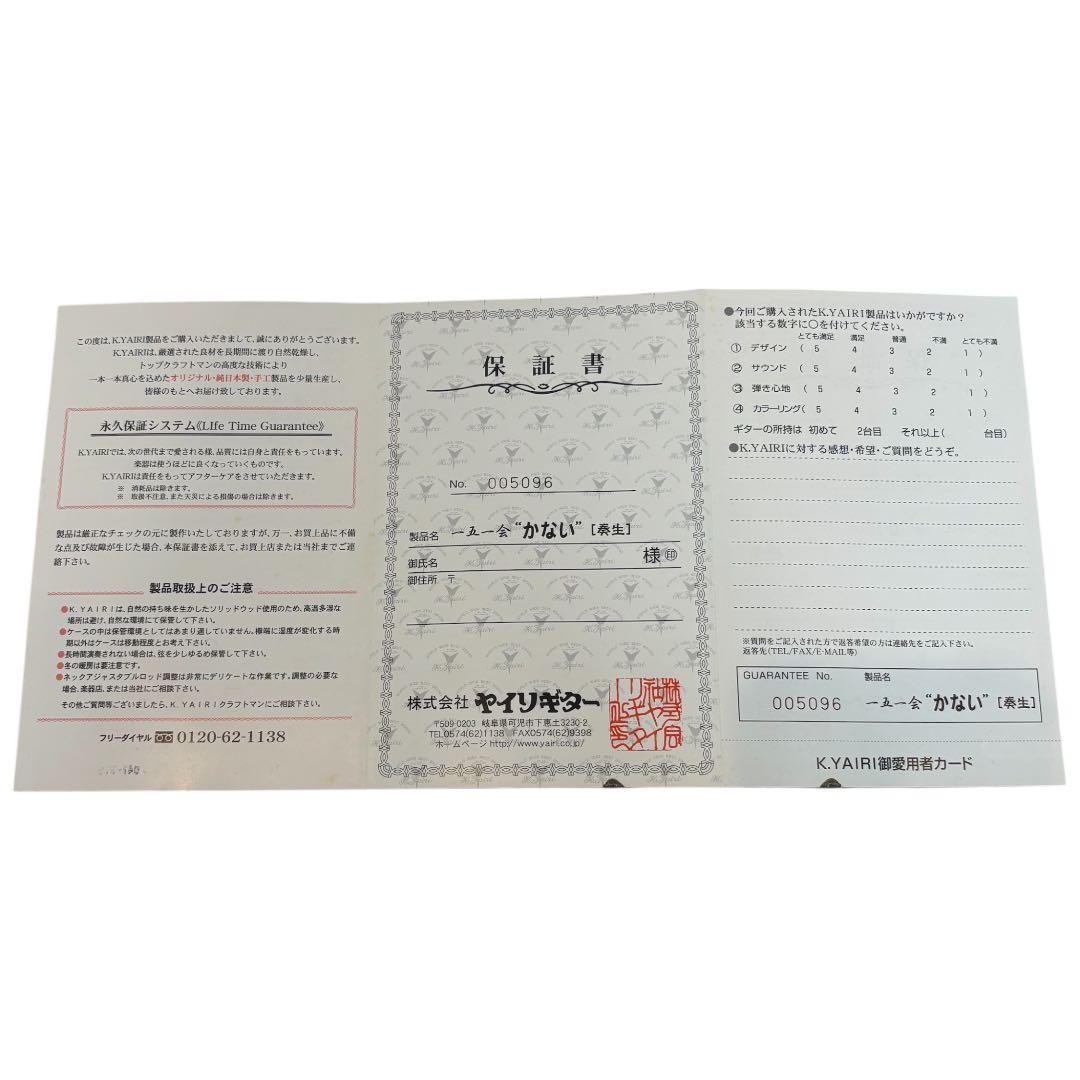 この度は、K.YAIRI製品をご購入いただきまして、誠にありがとうございます。
K.YAIRIは、厳選された良材を長期間に渡り自然乾燥し、
トップクラフトマンの高度な技術により
一本一本真心を込めたオリジナル・純日本製・手工製品を少量生産し、
皆様のもとへお届け致しております。
永久保証システム《LIfe Time Guarantee》
K.YAIRIでは、次の世代まで愛される様、品質には自身と責任をもっています。
楽器は使うほどに良くなっていくものです。
K.YAIRIは責任をもってアフターケアをさせていただきます。
※ 消耗品は除きます。
※ 取扱不注意、また天災による損傷の場合は除きます。
製品は厳正なチェックの元に製作いたしておりますが、万一、お買上品に不備
な点及び故障が生じた場合、本保証書を添えて、お買上店または当社までご連
絡下さい。
製品取扱上のご注意
●K.YAIRIは、自然の持ち味を生かしたソリッドウッド使用のため、高温多湿な
場所は避け、自然な環境にて保管して下さい。
●ケースの中は保管環境としてはあまり適していません。極端に湿度が変化する時
期以外はケースは移動程度とお考え下さい。
●長時間演奏されない場合は、弦を少しゆるめ保管して下さい。
●冬の暖房は要注意です。
●ネックアジャスタブルロッド調整は非常にデリケートな作業です。調整の必要な
場合、楽器店、または当社にご相談下さい。
その他ご質問等ございましたら、K.YAIRIクラフトマンにご相談下さい。
フリーダイヤル 0120-62-1138
保証書
No. 005096
製品名 一五一会“かない”[奏生]
御氏名 様 ㊞
御住所 〒
株式会社 ヤイリギター
〒509-0203 岐阜県可児市下恵土3230-2
TEL0574(62)1138 FAX0574(62)9398
ホームページ http://www.yairi.co.jp/
●今回ご購入されたK.YAIRI製品はいかがですか?
該当する数字に○を付けてください。
とても満足 満足 普通 不満 とても不満
① デザイン ( 5 4 3 2 1 )
② サウンド ( 5 4 3 2 1 )
③ 弾き心地 ( 5 4 3 2 1 )
④ カラーリング ( 5 4 3 2 1 )
ギターの所持は 初めて 2台目 それ以上( 台目)
●K.YAIRIに対する感想・希望・ご質問をどうぞ。
※質問をご記入された方で返答希望の方は連絡先をご記入下さい。
返答先(TEL/FAX/E-MAIL等)
GUARANTEE No. 製品名
005096 一五一会“かない”[奏生]
K.YAIRI御愛用者カード